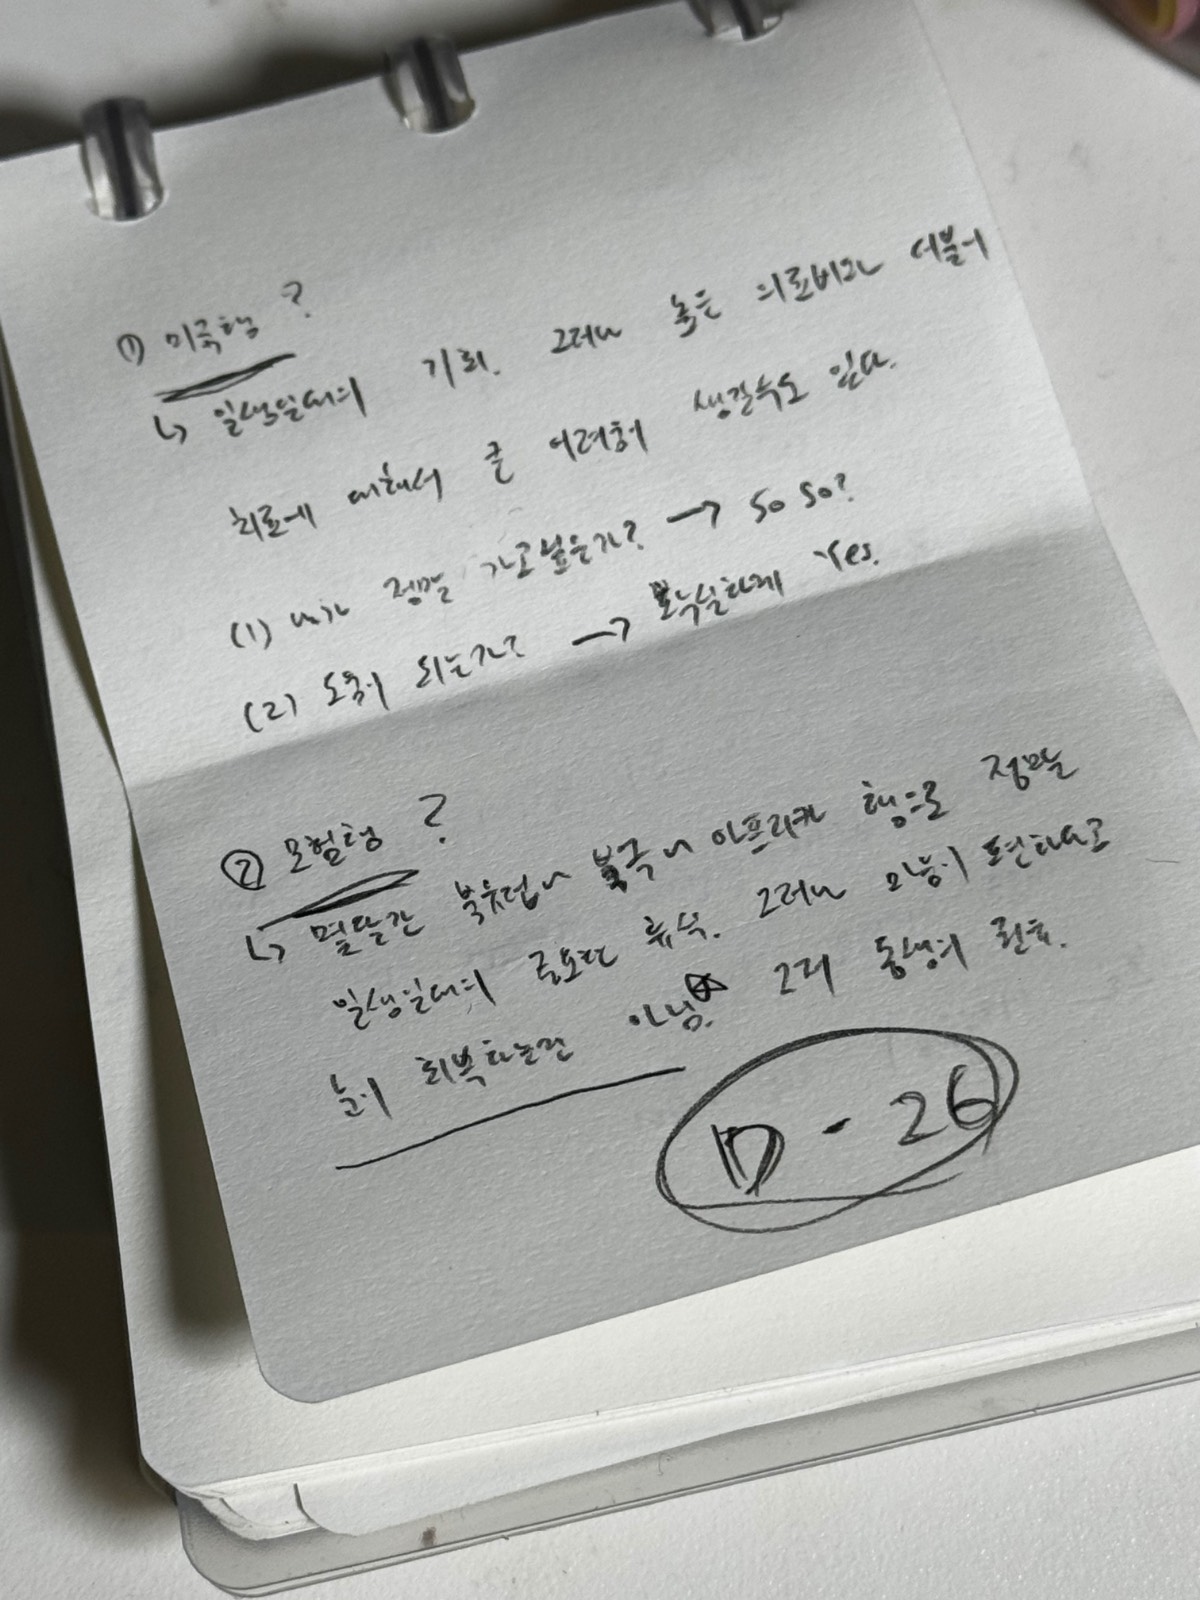 ① 미국행 ?
↳ 일생일대의 기회. 그러나 높은 의료비과 더불어
치료에 대해서 큰 어려움이 생길수도 있다.
(1) 내가 정말 가고싶은가? → so so?
(2) 도움이 되는가? → 확실하게 Yes.
② 모험행 ?
↳ 몇달간 북유럽이나 아프리카 행으로 정말
일생일대의 중요한 휴식. 그러나 마음이 편하다고
눈이 회복하는건 아님. 그리 동생의 권유.
D - 26